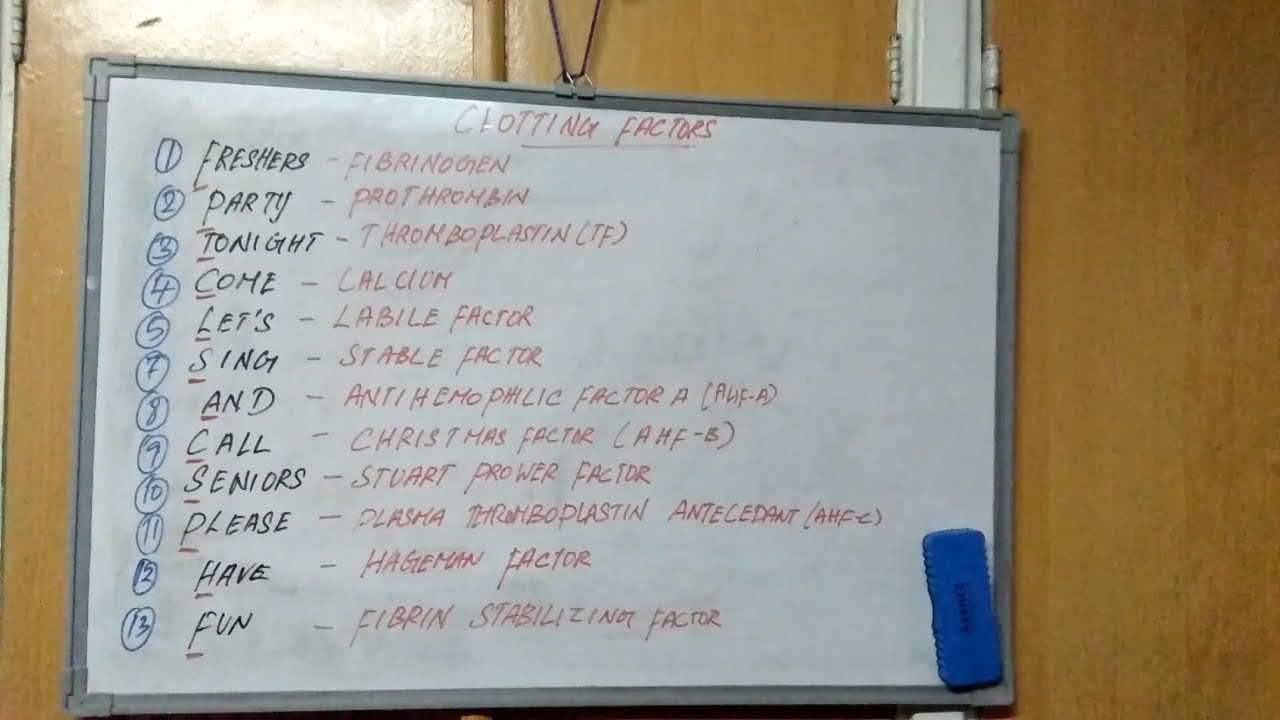 CLOTTING FACTORS
1 FRESHERS - FIBRINOGEN
2 PARTY - PROTHROMBIN
3 TONIGHT - THROMBOPLASTIN (TF)
4 COME - CALCIUM
5 LET'S - LABILE FACTOR
7 SING - STABLE FACTOR
8 AND - ANTIHEMOPHILIC FACTOR A (AHF-A)
9 CALL - CHRISTMAS FACTOR (AHF-B)
10 SENIORS - STUART PROWER FACTOR
11 PLEASE - PLASMA THROMBOPLASTIN ANTECEDANT (AHF-C)
12 HAVE - HAGEMAN FACTOR
13 FUN - FIBRIN STABILIZING FACTOR